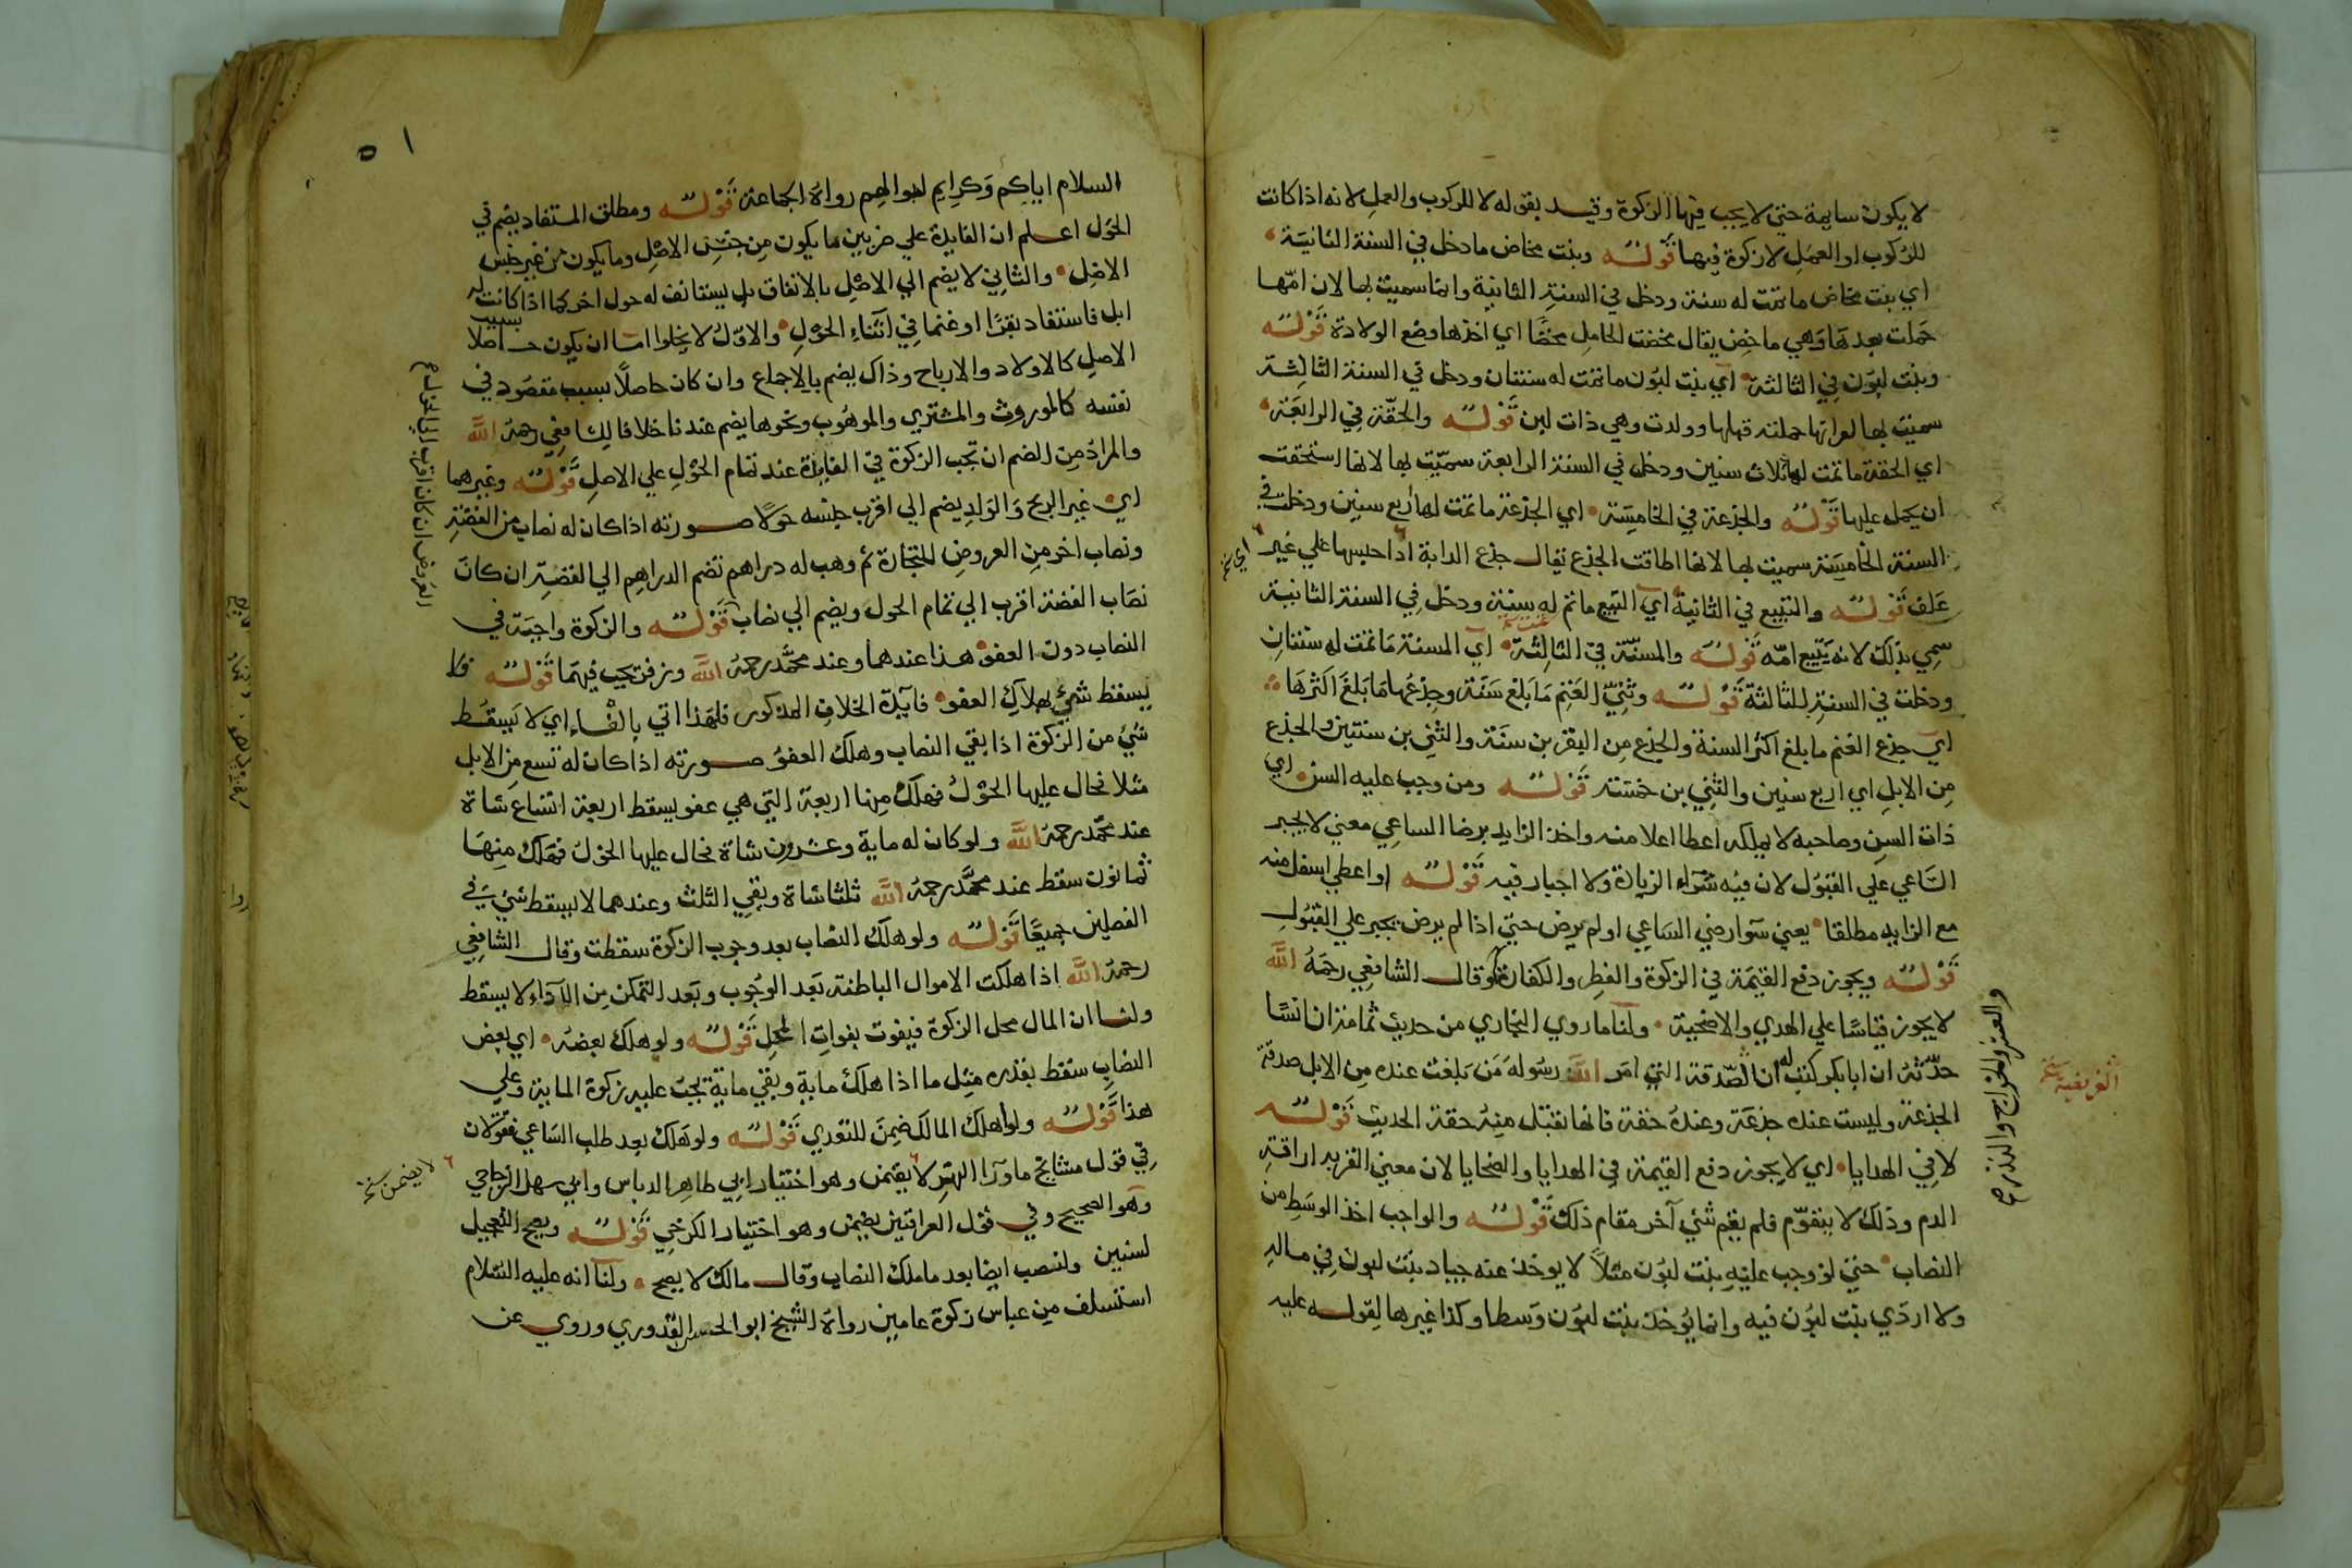 لا يكون سايمة حتي لا يجب فيها الزكوة وقيد بقوله لا للركوب والعمل لانه اذا كانت
للركوب او العمل لا زكوة فيها قوله وبنت مخاض ما دخل في السنة الثانية
اي بنت مخاض ما تمت له سنة ودخل في السنة الثانية وانما سميت بها لان امها
حملت بعدها وهي ماخض يقال مخضت الحامل مخضا اي اخذها وضع الولادة قوله
وبنت لبون في الثالثة اي بنت لبون ما تمت له سنتان ودخل في السنة الثالثة
سميت بها لوان امها حملته قبلها وولدت وهي ذات لبن قوله والحقة في الرابعة
اي الحقة ما تمت لها ثلاث سنين ودخل في السنة الرابعة سميت بها لانها استحقت
ان يحمل عليها قوله والجذعة في الخامسة اي الجذعة ما تمت لها اربع سنين ودخلت في
السنة الخامسة سميت بها لانها اطاقت الجذع يقال جذع الدابة اذا حبسها علي غير
علف قوله والتبيع في الثانية اي التبيع ما تم له سنة ودخل في السنة الثانية
سمي بذلك لانه يتبع امه قوله والمسنة في الثالثة اي المسنة ما تمت له سنتان
ودخلت في السنة الثالثة قوله وثني الغنم ما بلغ سنة وجذعها ما بلغ اكثرها
اي جذع الغنم ما بلغ اكثر السنة والجذع من البقر بن سنة والثني بن سنتين والجذع
من الابل اي اربع سنين والثني بن خمسة قوله ومن وجب عليه السن اي
ذات السن وصاحبه لا يملكه اعطا اعلا منه واخذ الزايد برضا الساعي معني لا يجبر
الساعي علي القبول لان فيه شراء الزيادة ولا اجبار فيه قوله او اعطي اسفل منه
مع الزايد مطلقا يعني سوا رضي الساعي او لم يرض حتي اذا لم يرض يجبر علي القبول
قوله ويجوز دفع القيمة في الزكوة والفطر والكفارة وقال الشافعي رحمه الله
لا يجوز قياسا علي الهدي والاضحية ولنا ما روي البخاري من حديث ثمامة ان انسا
حدثه ان ابا بكر كتب له ان الصدقة التي امر الله رسوله من بلغت عنده من الابل صدقة
الجذعة وليست عنده جذعة وعنده حقة فانها تقبل منه حقة الحديث قوله
لا في الهدايا اي لا يجوز دفع القيمة في الهدايا والضحايا لان معني القربة اراقة
الدم وذلك لا يتقوم فلم يقم شئ آخر مقام ذلك قوله والواجب اخذ الوسط من
النصاب حتي لو وجب عليه بنت لبون مثلا لا يوخذ عنه جياد بنت لبون في ماله
ولا اردي بنت لبون فيه وانما يؤخذ بنت لبون وسطا وكذا غيرها لقوله عليه
اي نخ
والعشر والخراج والنذر
١٥
السلام اياكم وكرايم اموالهم رواه الجماعة قوله ومطلق المستفاد يضم في
الحول اعلم ان الفايدة علي ضربين ما يكون من جنس الاصل وما يكون من غير جنس
الاصل والثاني لا يضم الي الاصل بالاتفاق بل يستانف له حول اخر كما اذا كانت له
ابل فاستفاد بقرا او غنما في اثناء الحول والاول لا يخلوا اما ان يكون حاصلا بسبب
الاصل كالاولاد والارباح وذاك يضم بالاجماع وان كان حاصلا بسبب مقصود في
نفسه كالموروث والمشتري والموهوب ونحوها يضم عندنا خلافا للشافعي رحمه الله
والمراد من الضم ان تجب الزكوة في الفايدة عند تمام الحول علي الاصل قوله وغيرهما
اي غير الربح والولد يضم الي اقرب جنسه حولا صورته اذا كان له نصاب من الفضة
ونصاب اخر من العروض للتجارة ثم وهب له دراهم تضم الدراهم الي الفضة ان كان
نصاب الفضة اقرب الي تمام الحول ويضم الي نصاب قوله والزكوة واجبة في
النصاب دون العفو هذا عندهما وعند محمد رحمه الله وزفر تجب فيهما قوله فلا
يسقط شئ بهلاك العفو فايدة الخلاف المذكور فلهذا اتي بالفاء اي لا يسقط
شئ من الزكوة اذا بقي النصاب وهلك العفو صورته اذا كان له تسع من الابل
مثلا فحال عليها الحول فهلك منها اربعة التي هي عفو يسقط اربعة اتساع شاة
عند محمد رحمه الله ولو كان له ماية وعشرون شاة فحال عليها الحول فهلك منها
ثمانون سقط عند محمد رحمه الله ثلثا شاة وبقي الثلث وعندهما لا يسقط شئ في
الفصلين جميعا قوله ولو هلك النصاب بعد وجوب الزكوة سقطت وقال الشافعي
رحمه الله اذا هلكت الاموال الباطنة بعد الوجوب وبعد التمكن من الاداء لا يسقط
ولنا ان المال محل الزكوة فيفوت بفوات المحل قوله ولو هلك بعضه اي بعض
النصاب سقط بقدره مثل ما اذا هلك ماية وبقي ماية تجب عليه زكوة الماية وعلي
هذا قوله ولو اهلك المالك ضمن للتعدي قوله ولو هلك بعد طلب الساعي فقولان
في قول مشايخ ما ورا النهر لا يضمن وهو اختيار ابي طاهر الدباس وابي سهل الزجاجي
وهو الصحيح وفي قول العراقيين يضمن وهو اختيار الكرخي قوله ويصح التعجيل
لسنين ولنصب ايضا بعد ما ملك النصاب وقال مالك لا يصح ولنا انه عليه السلام
استسلف من عباس زكوة عامين رواه الشيخ ابو الحسن القدوري وروي عن
العروض ان كان اقرب الي الحول
لا يضمن نخ